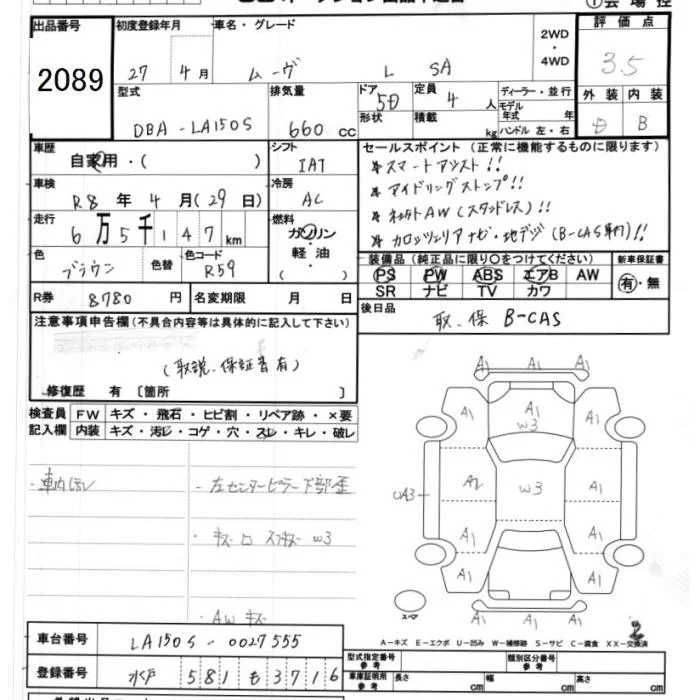 出品番号 初度登録年月 車名・グレード 2WD ・ 4WD 評価点
2089 27 4月 ムーヴ L SA 3.5
型式 排気量 ドア 定員 ディーラー・並行 外装 内装
DBA-LA150S 660cc 5D 4人 モデル年式 年 D B
形状 積載 kg ハンドル 左・右
車歴 シフト セールスポイント(正常に機能するものに限ります)
自家用・( ) IAT *スマートアシスト!!
車検 冷房 *アイドリングストップ!!
R8年4月(29日) AC
走行 燃料 *ネオクトAW(スタッドレス)!!
6万5千147km ガソリン *カロッツェリアナビ・地デジ(B-CAS有)!!
色 色替 色コード 軽油 装備品(純正品に限り○をつけてください) 新車保証書
ブラウン R59 ( ) PS PW ABS エアB AW 有・無
SR ナビ TV カワ
R券 8780円 名変期限 月 日 後日品
取.保 B-CAS
注意事項申告欄(不具合内容等は具体的に記入して下さい)
(取説.保証書有)
修復歴 有〔箇所 〕
検査員 FW キズ・飛石・ヒビ割・リペア跡・×要
記入欄 内装 キズ・汚レ・コゲ・穴・スレ・キレ・破レ
A1 A1 A1
A1 A1 A1
W3
・車内汚レ ・左センターピラー下部歪
UA3 A2 W3 A1
・キズ凹 スリキズ W3
A1 A1
A1 A1
・AWキズ
スペア
A1 A1 A1
2
A-キズ E-エクボ U-凹み W-補修跡 S-サビ C-腐食 XX-交換済
車台番号 LA150S-0027555
型式指定番号 参考 類別区分番号 参考
登録番号 水戸 581 も 3716
車庫証明用 参考 長さ cm 幅 cm 高さ cm